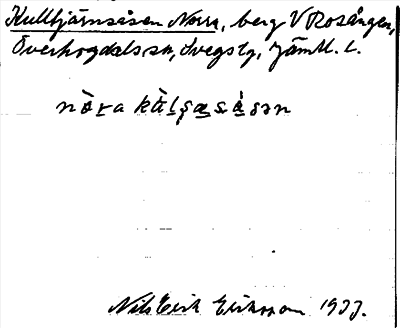 Kulltjärnsåsen Norra, berg V Rosången,
Överhogdals sn, Svegs tg, Jämtl. l.
nòra kàlʂæsåsən
Nils Erik Eriksson 1933.